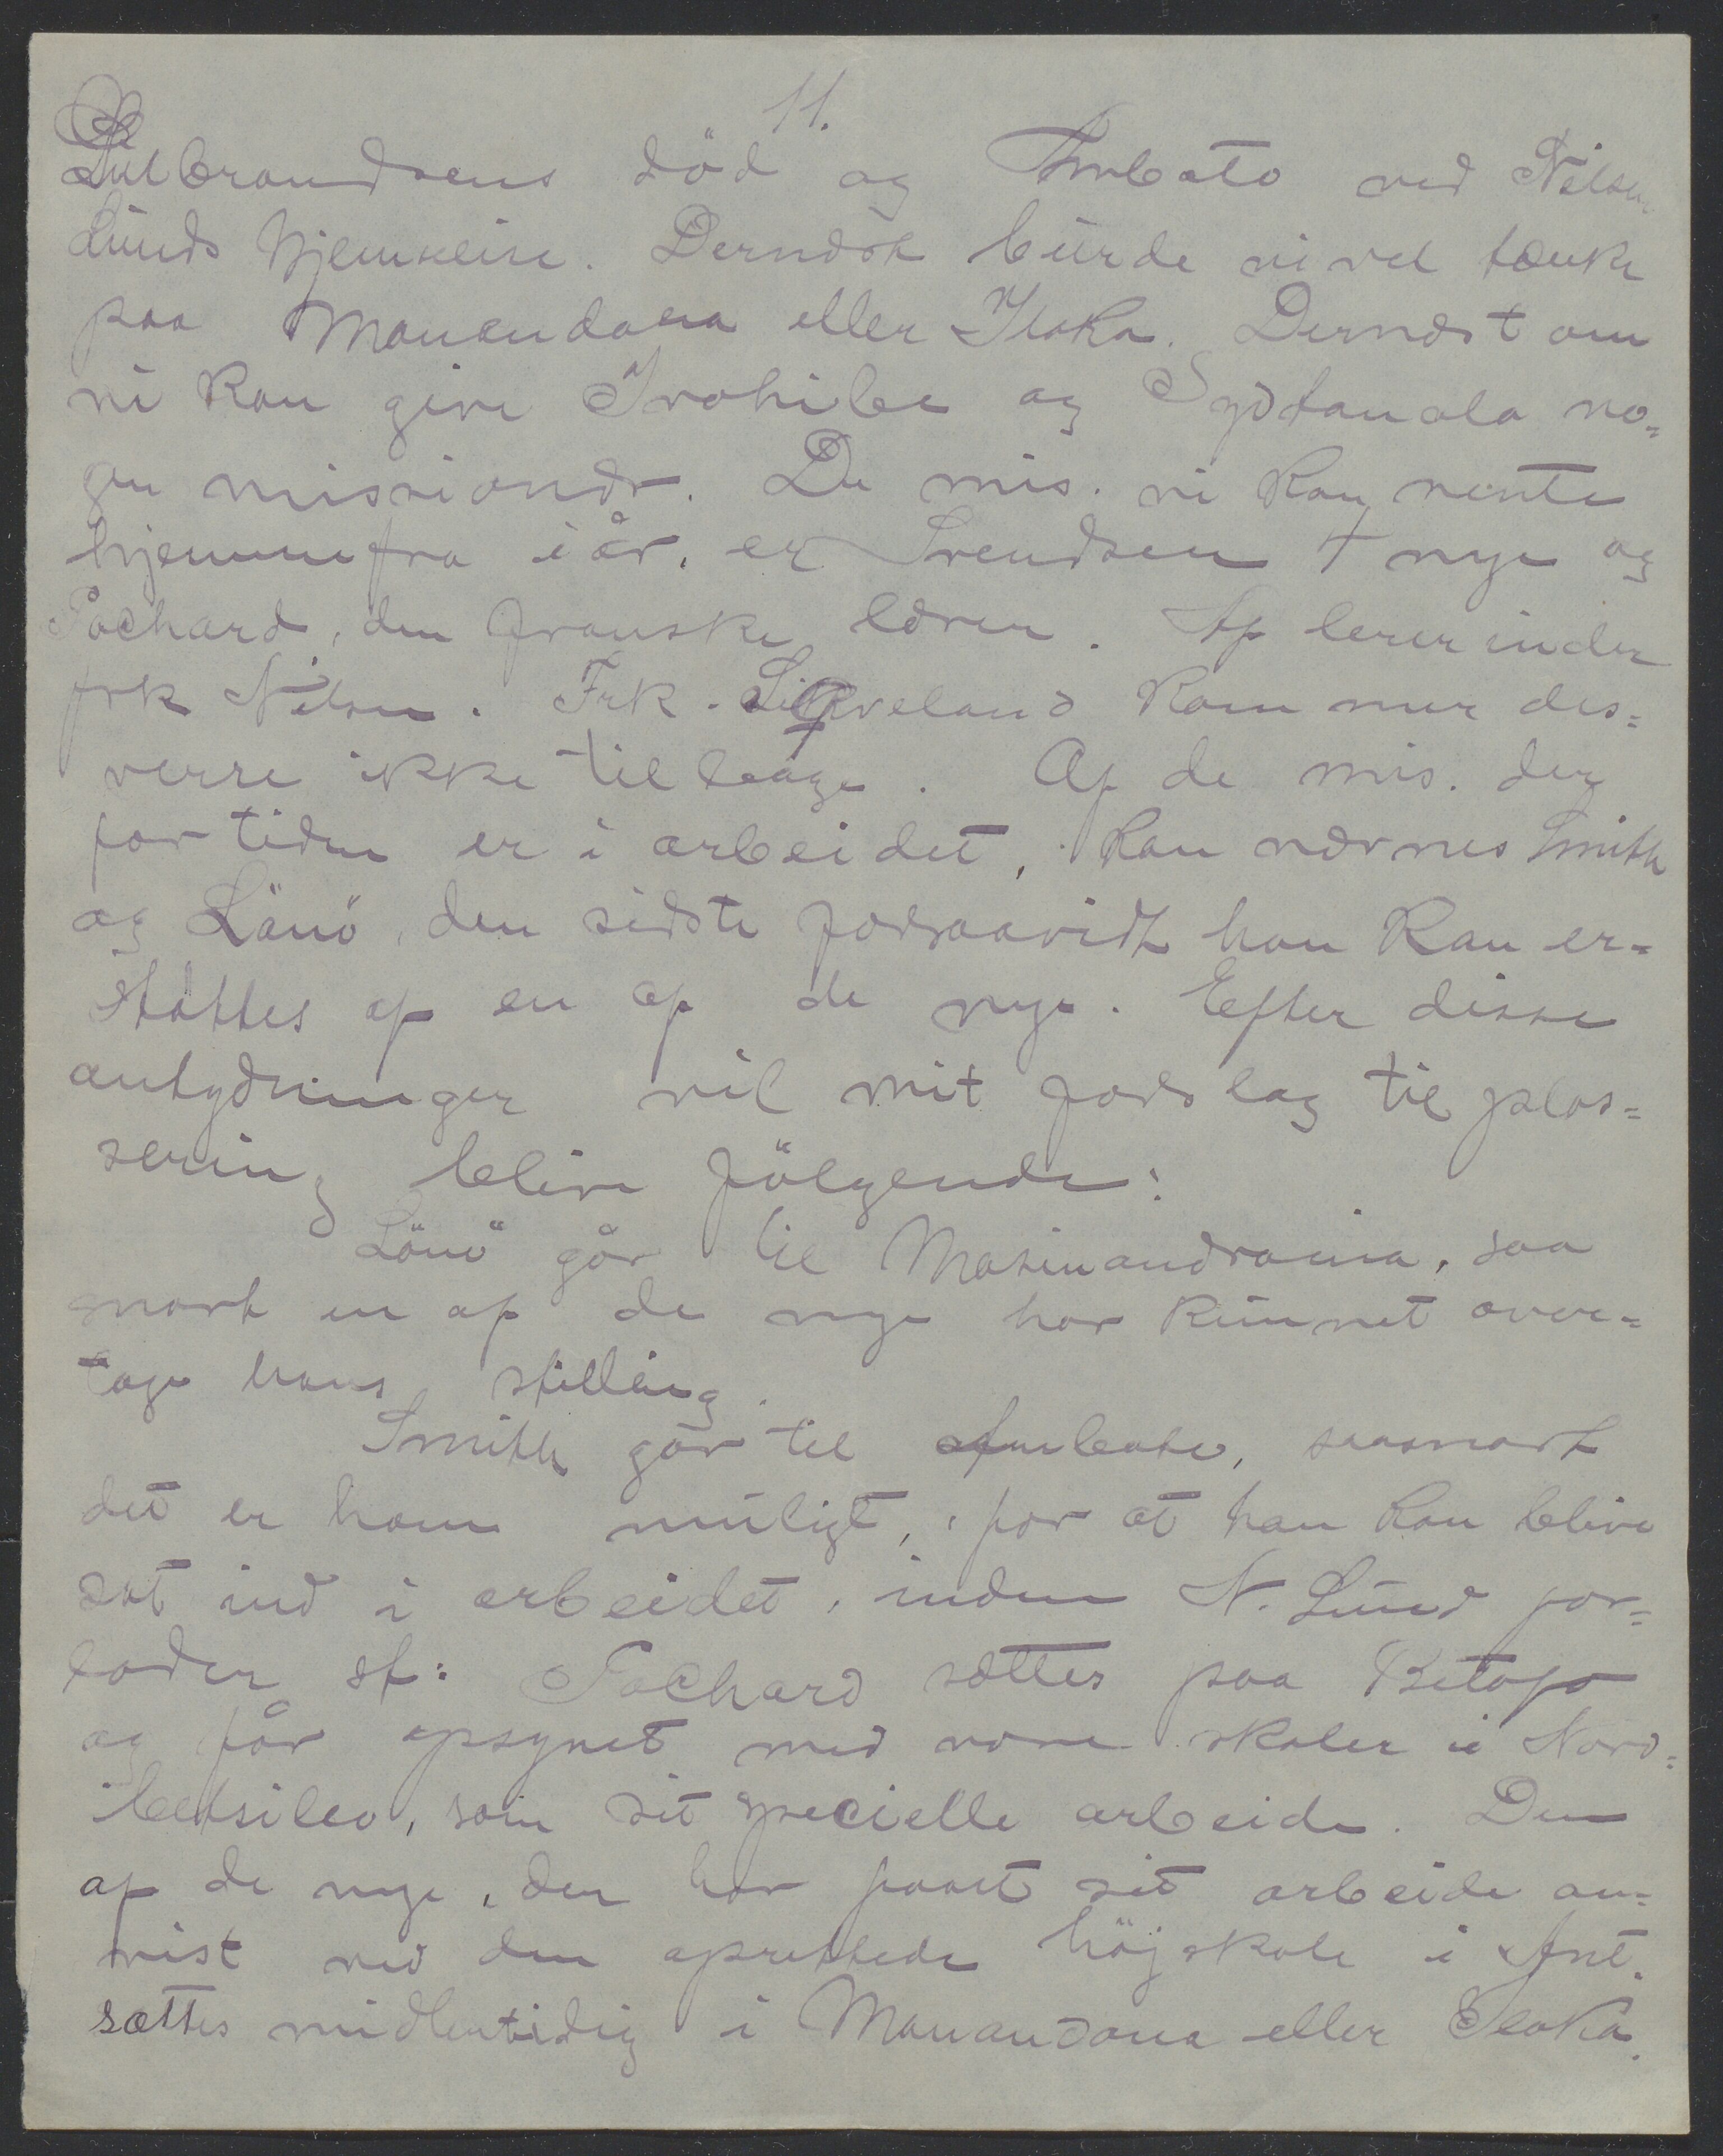 11.
Gulbrandsens död og Ambato ved Nilsen
Lunds hjemreise. Dernæst burde vi vel tænke
paa Manandona eller Ilaka. Dernæst om
vi kan give Ivohibe og Sydtanala no=
gen missionær. De mis. vi kan vente
hjemmefra i år, er Svendsen + nye og
Pochard, den franske lærer. Af lererinder
frk Nilsen. Frk. Sikveland kom mer des=
verre ikke tilbage. Af de mis. der
for tiden er i arbeidet, kan nævnes Smith
og Lönö, den sidste forsaavidt han kan er=
stattes af en af de nye. Efter disse
antydninger vil mit forslag til plas=
sering blive fölgende:
Lönö går til Masinandraina, saa
snart en af de nye har kunnet over=
tage hans stilling.
Smith går til Ambato, saasnart
det er ham muligt, for at han kan blive
sat ind i arbeidet, inden N. Lund for=
lader st: Pochard sættes paa Betafo
og får opsynet med vore skoler i Nord=
betsileo, som sit specielle arbeide. Den
af de nye, der har faaet sit arbeide an=
vist ved den oprettede höjskole i Ant.
sættes midlertidig i Manandona eller Ilaka.